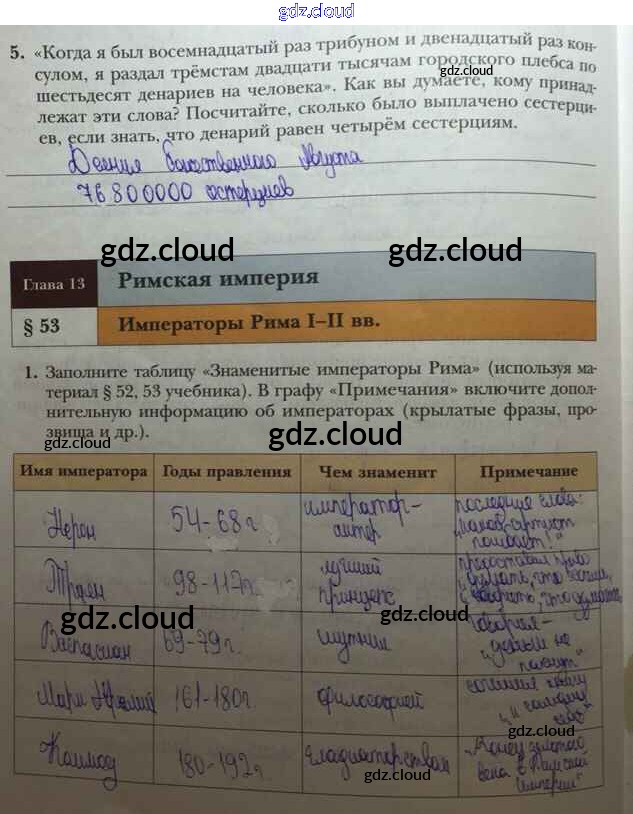 gdz.cloud
5. «Когда я был восемнадцатый раз трибуном и двенадцатый раз кон-
сулом, я раздал трёмстам двадцати тысячам городского плебса по
gdz.cloud
шестьдесят денариев на человека». Как вы думаете, кому принад-
лежат эти слова? Посчитайте, сколько было выплачено сестерци-
ев, если знать, что денарий равен четырём сестерциям.
Деяния Божественного Августа
76800000 сестерциев
gdz.cloud gdz.cloud
Глава 13 Римская империя
§ 53 Императоры Рима I–II вв.
1. Заполните таблицу «Знаменитые императоры Рима» (используя ма-
териал § 52, 53 учебника). В графу «Примечания» включите допол-
нительную информацию об императорах (крылатые фразы, про-
звища и др.).
gdz.cloud gdz.cloud gdz.cloud
Имя императора Годы правления Чем знаменит Примечание
Нерон 54-68г. император-
актер
последние слова:
"какой артист
погибает!"
gdz.cloud
Траян 98-117г. лучший
принцепс
предоставил право
думать, что хотите,
и говорить, что думаете
gdz.cloud gdz.cloud
Веспасиан 69-79г. шутник
говорил-
"деньги не
пахнут"
Марк Аврелий 161-180г. философией
сочинил книгу
"К самому
себе"
gdz.cloud gdz.cloud
Коммод 180-192г. гладиаторством
"Конец золотого
века в Римской
Империи"
gdz.cloud